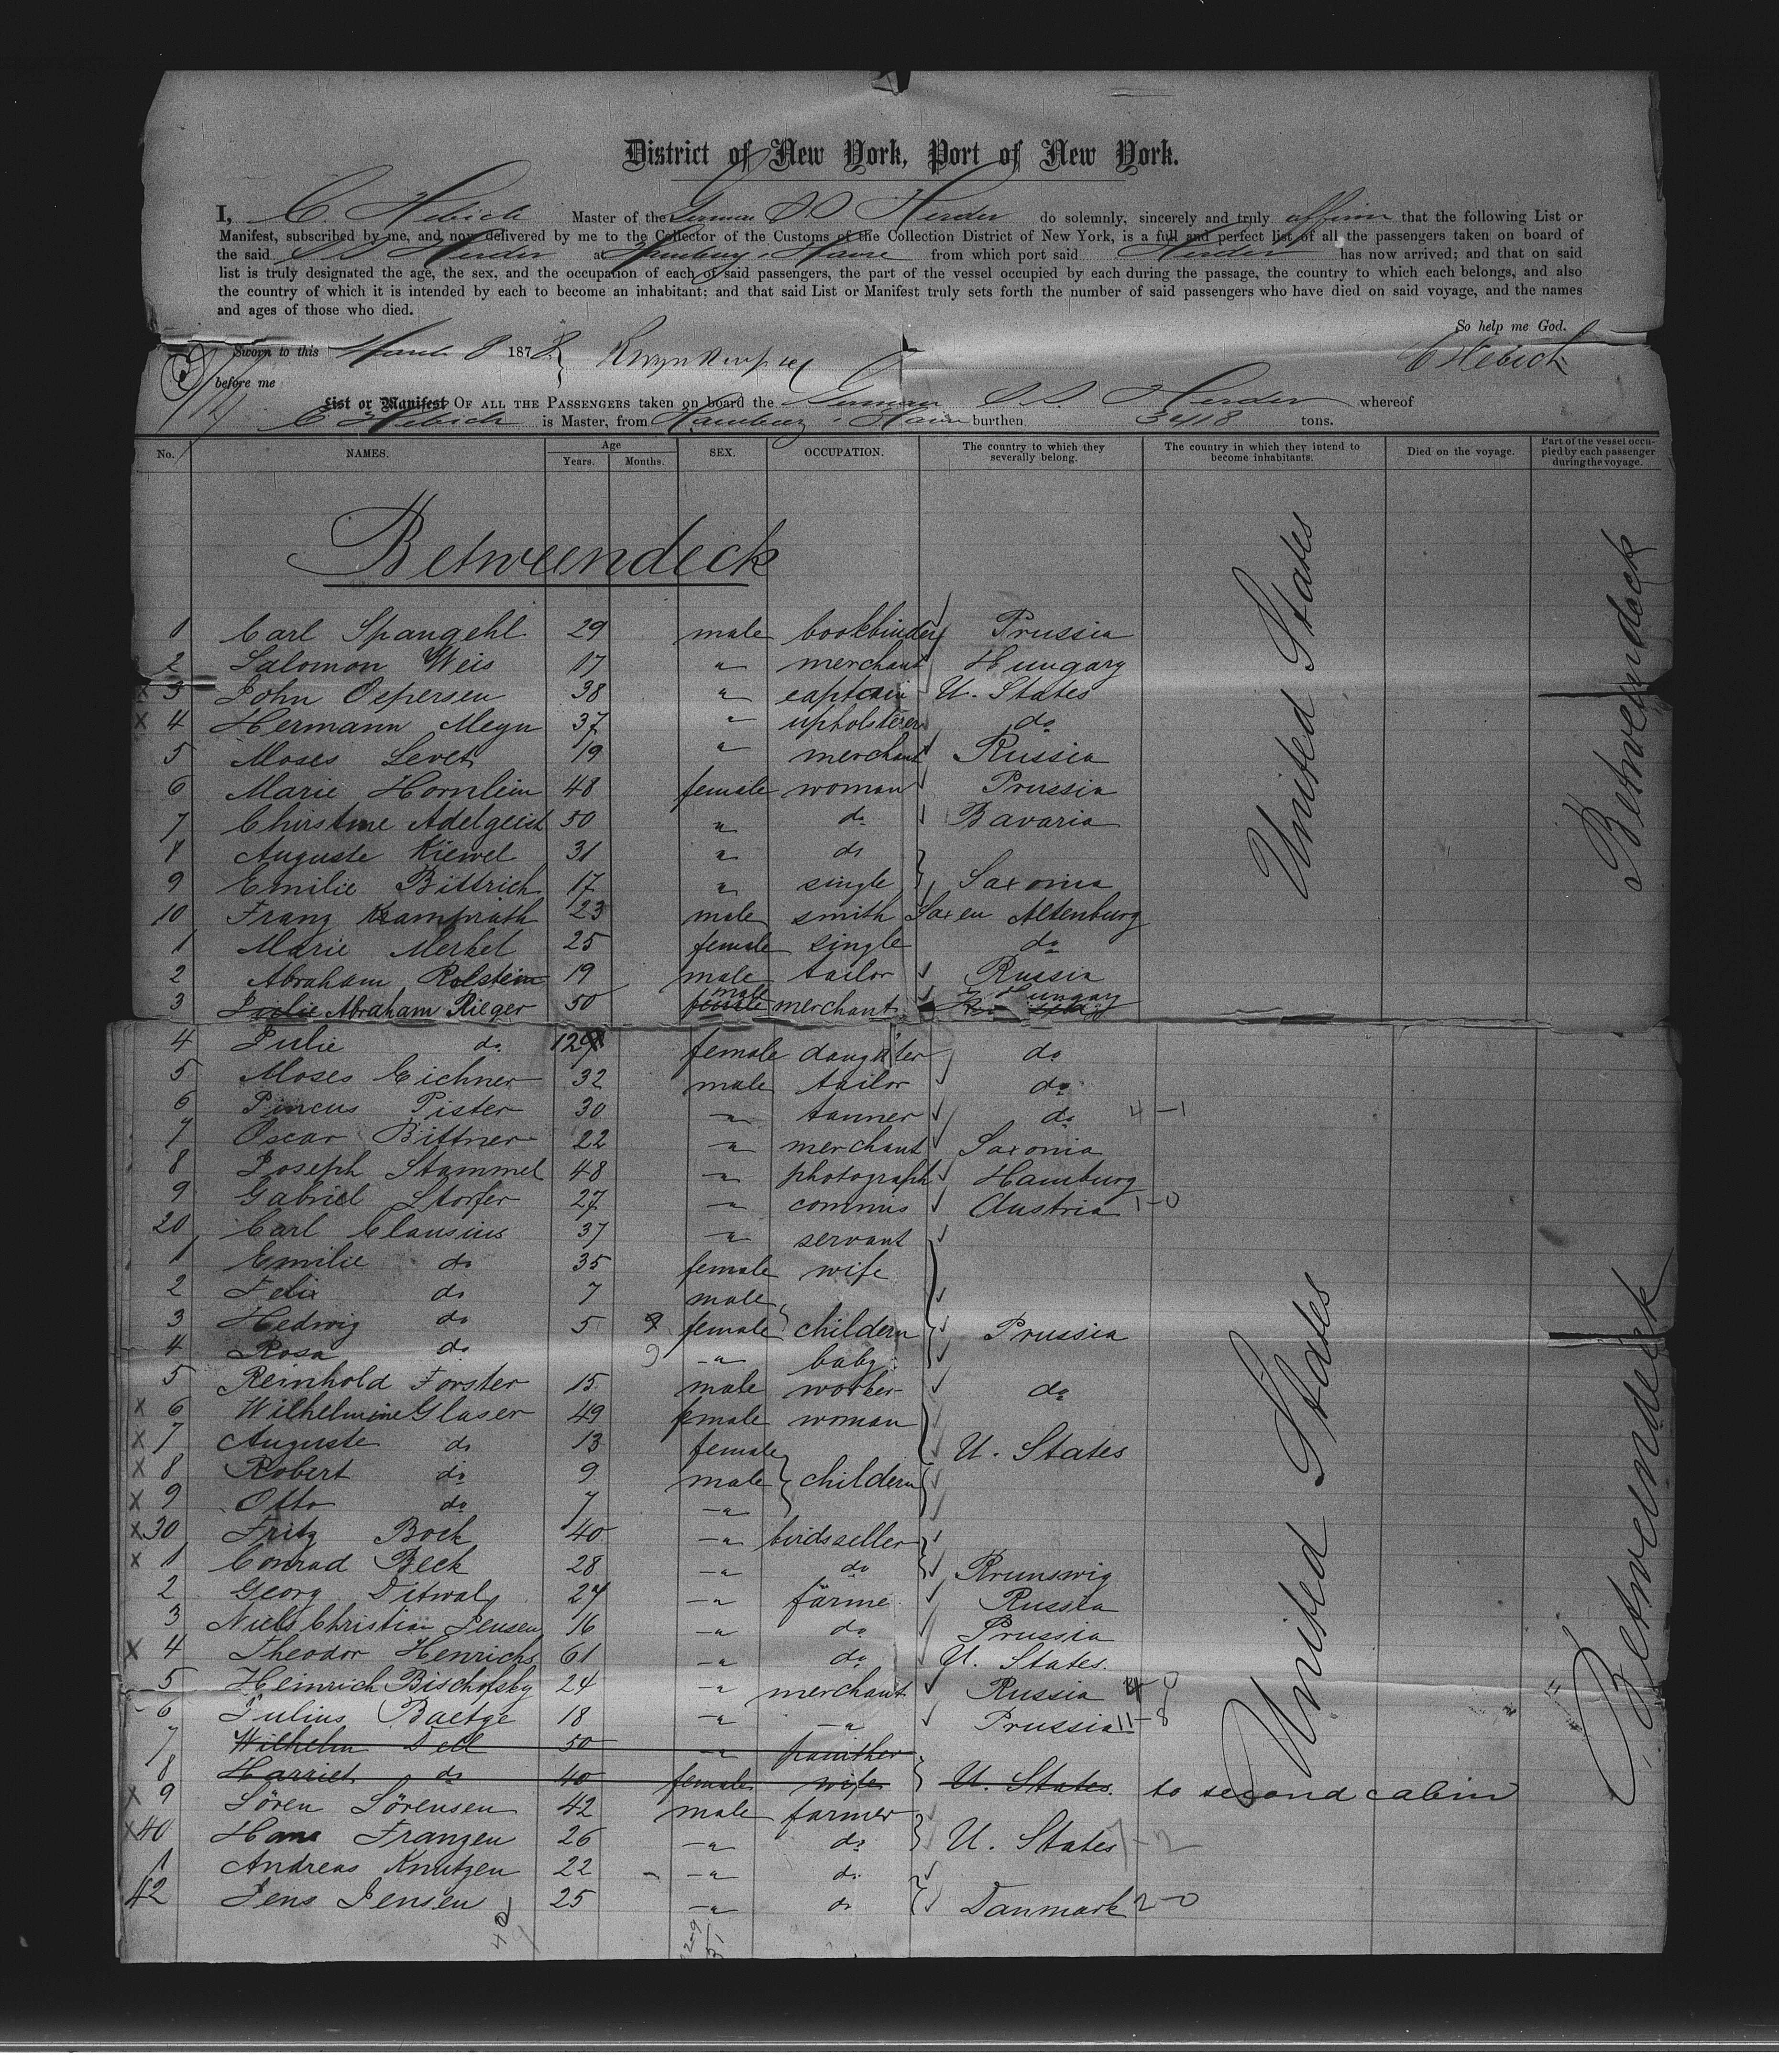 District of New York, Port of New York.
I, C. Hebich Master of the German SS Herder do solemnly, sincerely and truly affirm that the following List or
Manifest, subscribed by me, and now delivered by me to the Collector of the Customs of the Collection District of New York, is a full and perfect list of all the passengers taken on board of
the said SS Herder at Hamburg & Havre from which port said Herder has now arrived; and that on said
list is truly designated the age, the sex, and the occupation of each of said passengers, the part of the vessel occupied by each during the passage, the country to which each belongs, and also
the country of which it is intended by each to become an inhabitant; and that said List or Manifest truly sets forth the number of said passengers who have died on said voyage, and the names
and ages of those who died.
So help me God.
Sworn to this March 8 1878
C Hebich
before me
List or Manifest OF ALL THE PASSENGERS taken on board the German S.S. Herder whereof
C Hebich is Master, from Hamburg & Havre burthen 3418 tons.
No. NAMES. Age Years. Months. SEX. OCCUPATION. The country to which they severally belong. The country in which they intend to become inhabitants. Died on the voyage. Part of the vessel occupied by each passenger during the voyage.
Betweendeck
1 Carl Spangehl 29 male bookbinder Prussia
2 Salomon Weis 17 " merchant Hungary
x 3 John Oepersen 38 " captain U. States
x 4 Hermann Meyn 37 " upholsterer do
5 Moses Levet 19 " merchant Russia
6 Marie Hornlein 48 female woman Prussia
7 Christine Adelgeist 50 " do Bavaria
8 Auguste Kiewel 31 " do
9 Emilie Bittrich 17 " single Saxonia
10 Franz Kamprath 23 male smith Saxen Altenburg
1 Marie Merkel 25 female single do
2 Abraham Rolstein 19 male tailor Russia
3 Julie Abraham Rieger 50 female male merchant Hungary
4 Julie do 12 female daughter do
5 Moses Eichner 32 male tailor do
6 Pincus Pister 30 " tanner do 4-1
7 Oscar Bittner 22 " merchant Saxonia
8 Joseph Stammel 48 " photograph Hamburg
9 Gabriel Storfer 27 " commis Austria 1-0
20 Carl Clausius 37 " servant
1 Emilie do 35 female wife
2 Felix do 7 male
3 Hedwig do 5 female childern Prussia
4 Rosa do 9 " baby
5 Reinhold Forster 15 male worker do
x 6 Wilhelmine Glaser 49 female woman
x 7 Auguste do 13 female U. States
x 8 Robert do 9 male childern
x 9 Otto do 7 "
x 30 Fritz Bock 40 " birdsseller
x 1 Conrad Beck 28 " do Brunswig
2 Georg Ditwal 24 " färme Russia
3 Niels Christian Jensen 16 " do Prussia
x 4 Theodor Henrichs 61 " do U. States.
5 Heinrich Bischofsky 24 " merchant Russia 4-0
6 Julius Baetge 18 " " Prussia 11-8
7 Wilhelm Dell 50 " painther
8 Harriet do 40 female wife U. States. to second cabin
x 9 Sören Sörensen 42 male farmer
x 40 Hans Franzen 26 " do U. States
1 Andreas Knutzen 22 " do
42 Jens Jensen 25 " do Danmark 2-0
United States
Betweendeck
United States
Betweendeck